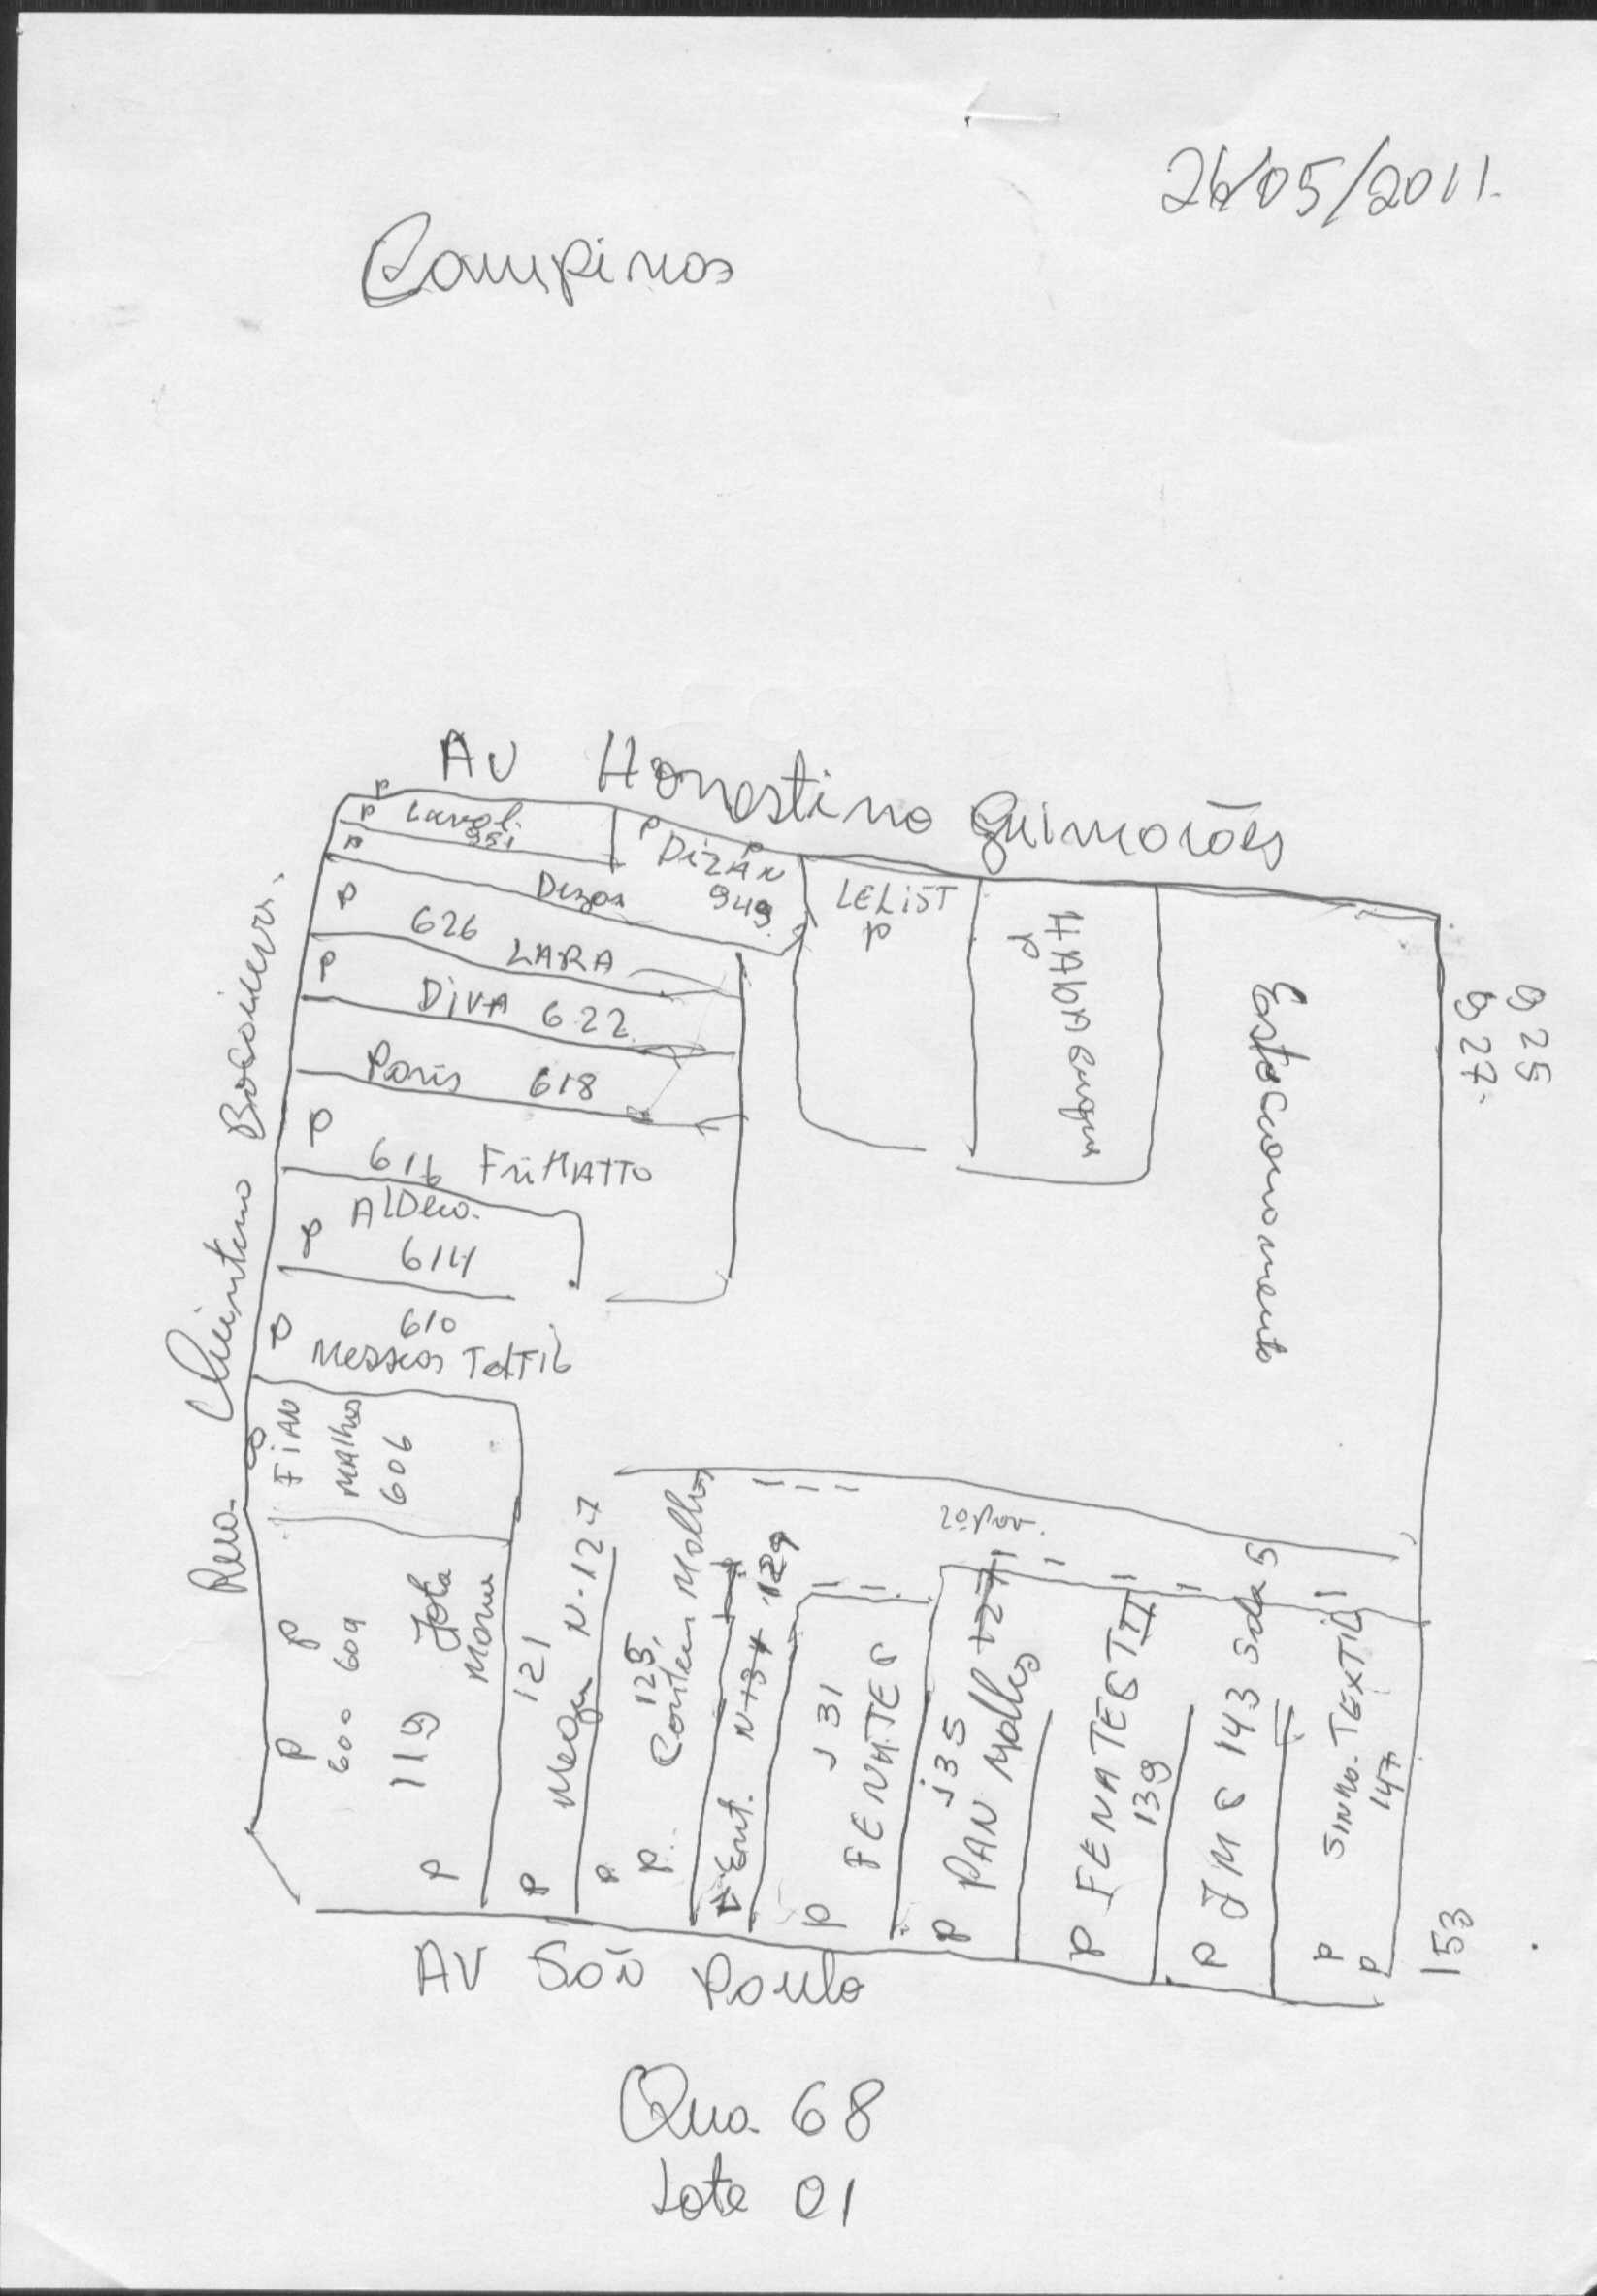 26/05/2011.
Campinas
AV Honestino Guimarães
P
P Lavol.
951
P
P DIZAN P
949.
Dizan
LELIST
P
HABda Sangue
P
Estacionamento
925
927.
P
626
LARA
P
DIVA 622
Paris 618
P
616 FriMATTO
AlDeco.
P
614
610
P
Messias TextIL
Rua Quintino Bocaiuva.
FIAN
MAlhas
606
P P
600 609
119 Jota
Mona
P
121
N-127
P
P
125
P..
Ent. N134 129
2º Pav.
131
FENATEC
P
135
PAN Malhas 127
P
P FENATEST II
139
P JMC 143 Sala 5
SINHO. TEXTIL
147
P
P
153
AV São Paulo
Qua. 68
Lote 01